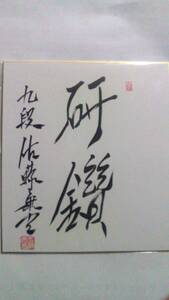 研鑽
九段 佐藤康光